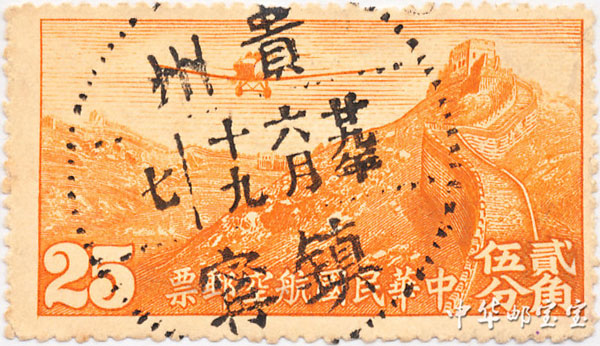 貴州
六月
十九
七
鎮寧
中華民國航空郵票
貳角
伍分
25
中华邮宝宝